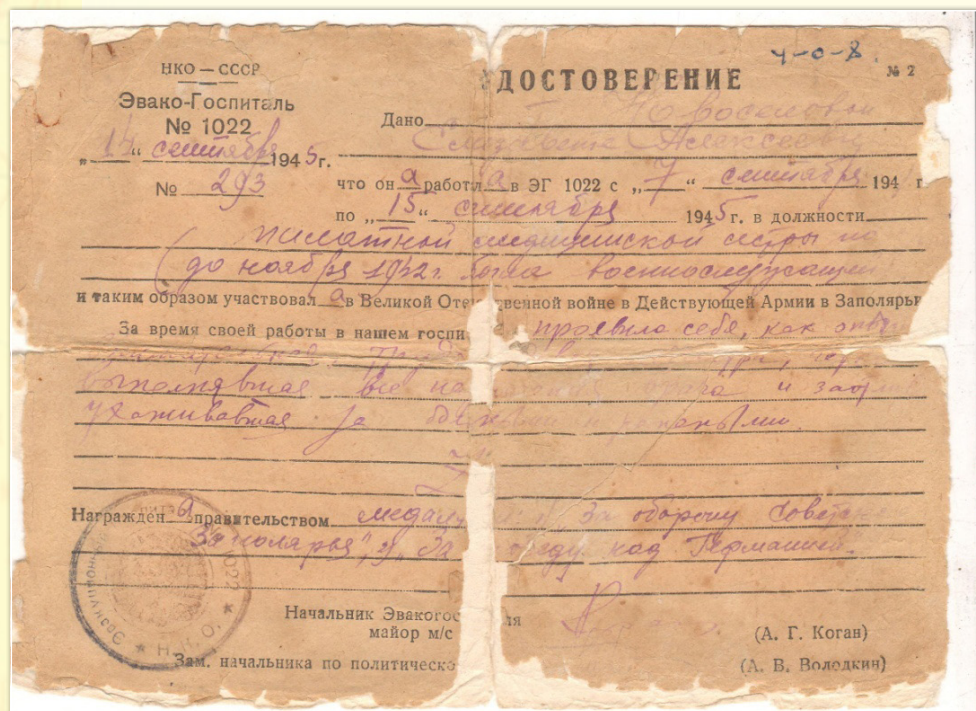 НКО — СССР
Эвако-Госпиталь
№ 1022
„14“ сентября 1945 г.
№ 293
4-0-8.
№ 2
УДОСТОВЕРЕНИЕ
Дано
Елизавете Алексеевне
что он а работал а в ЭГ 1022 с „7“ сентября 194 г
по „15“ сентября 1945 г. в должности
палатной медицинской сестры
(до ноября 1942 г. была военнослужащей
и таким образом участвовал а в Великой Отечественной войне в Действующей Армии в Заполярьи
За время своей работы в нашем госпи проявила себя, как
выполнявшая все и
ухаживавшая за больными и ранеными.
Награжден а правительством медал За оборону Советск
Заполярья", и, За над Германией.
Начальник Эвакогос ля
майор м/с
(А. Г. Коган)
Зам. начальника по политическо
(А. В. Володкин)